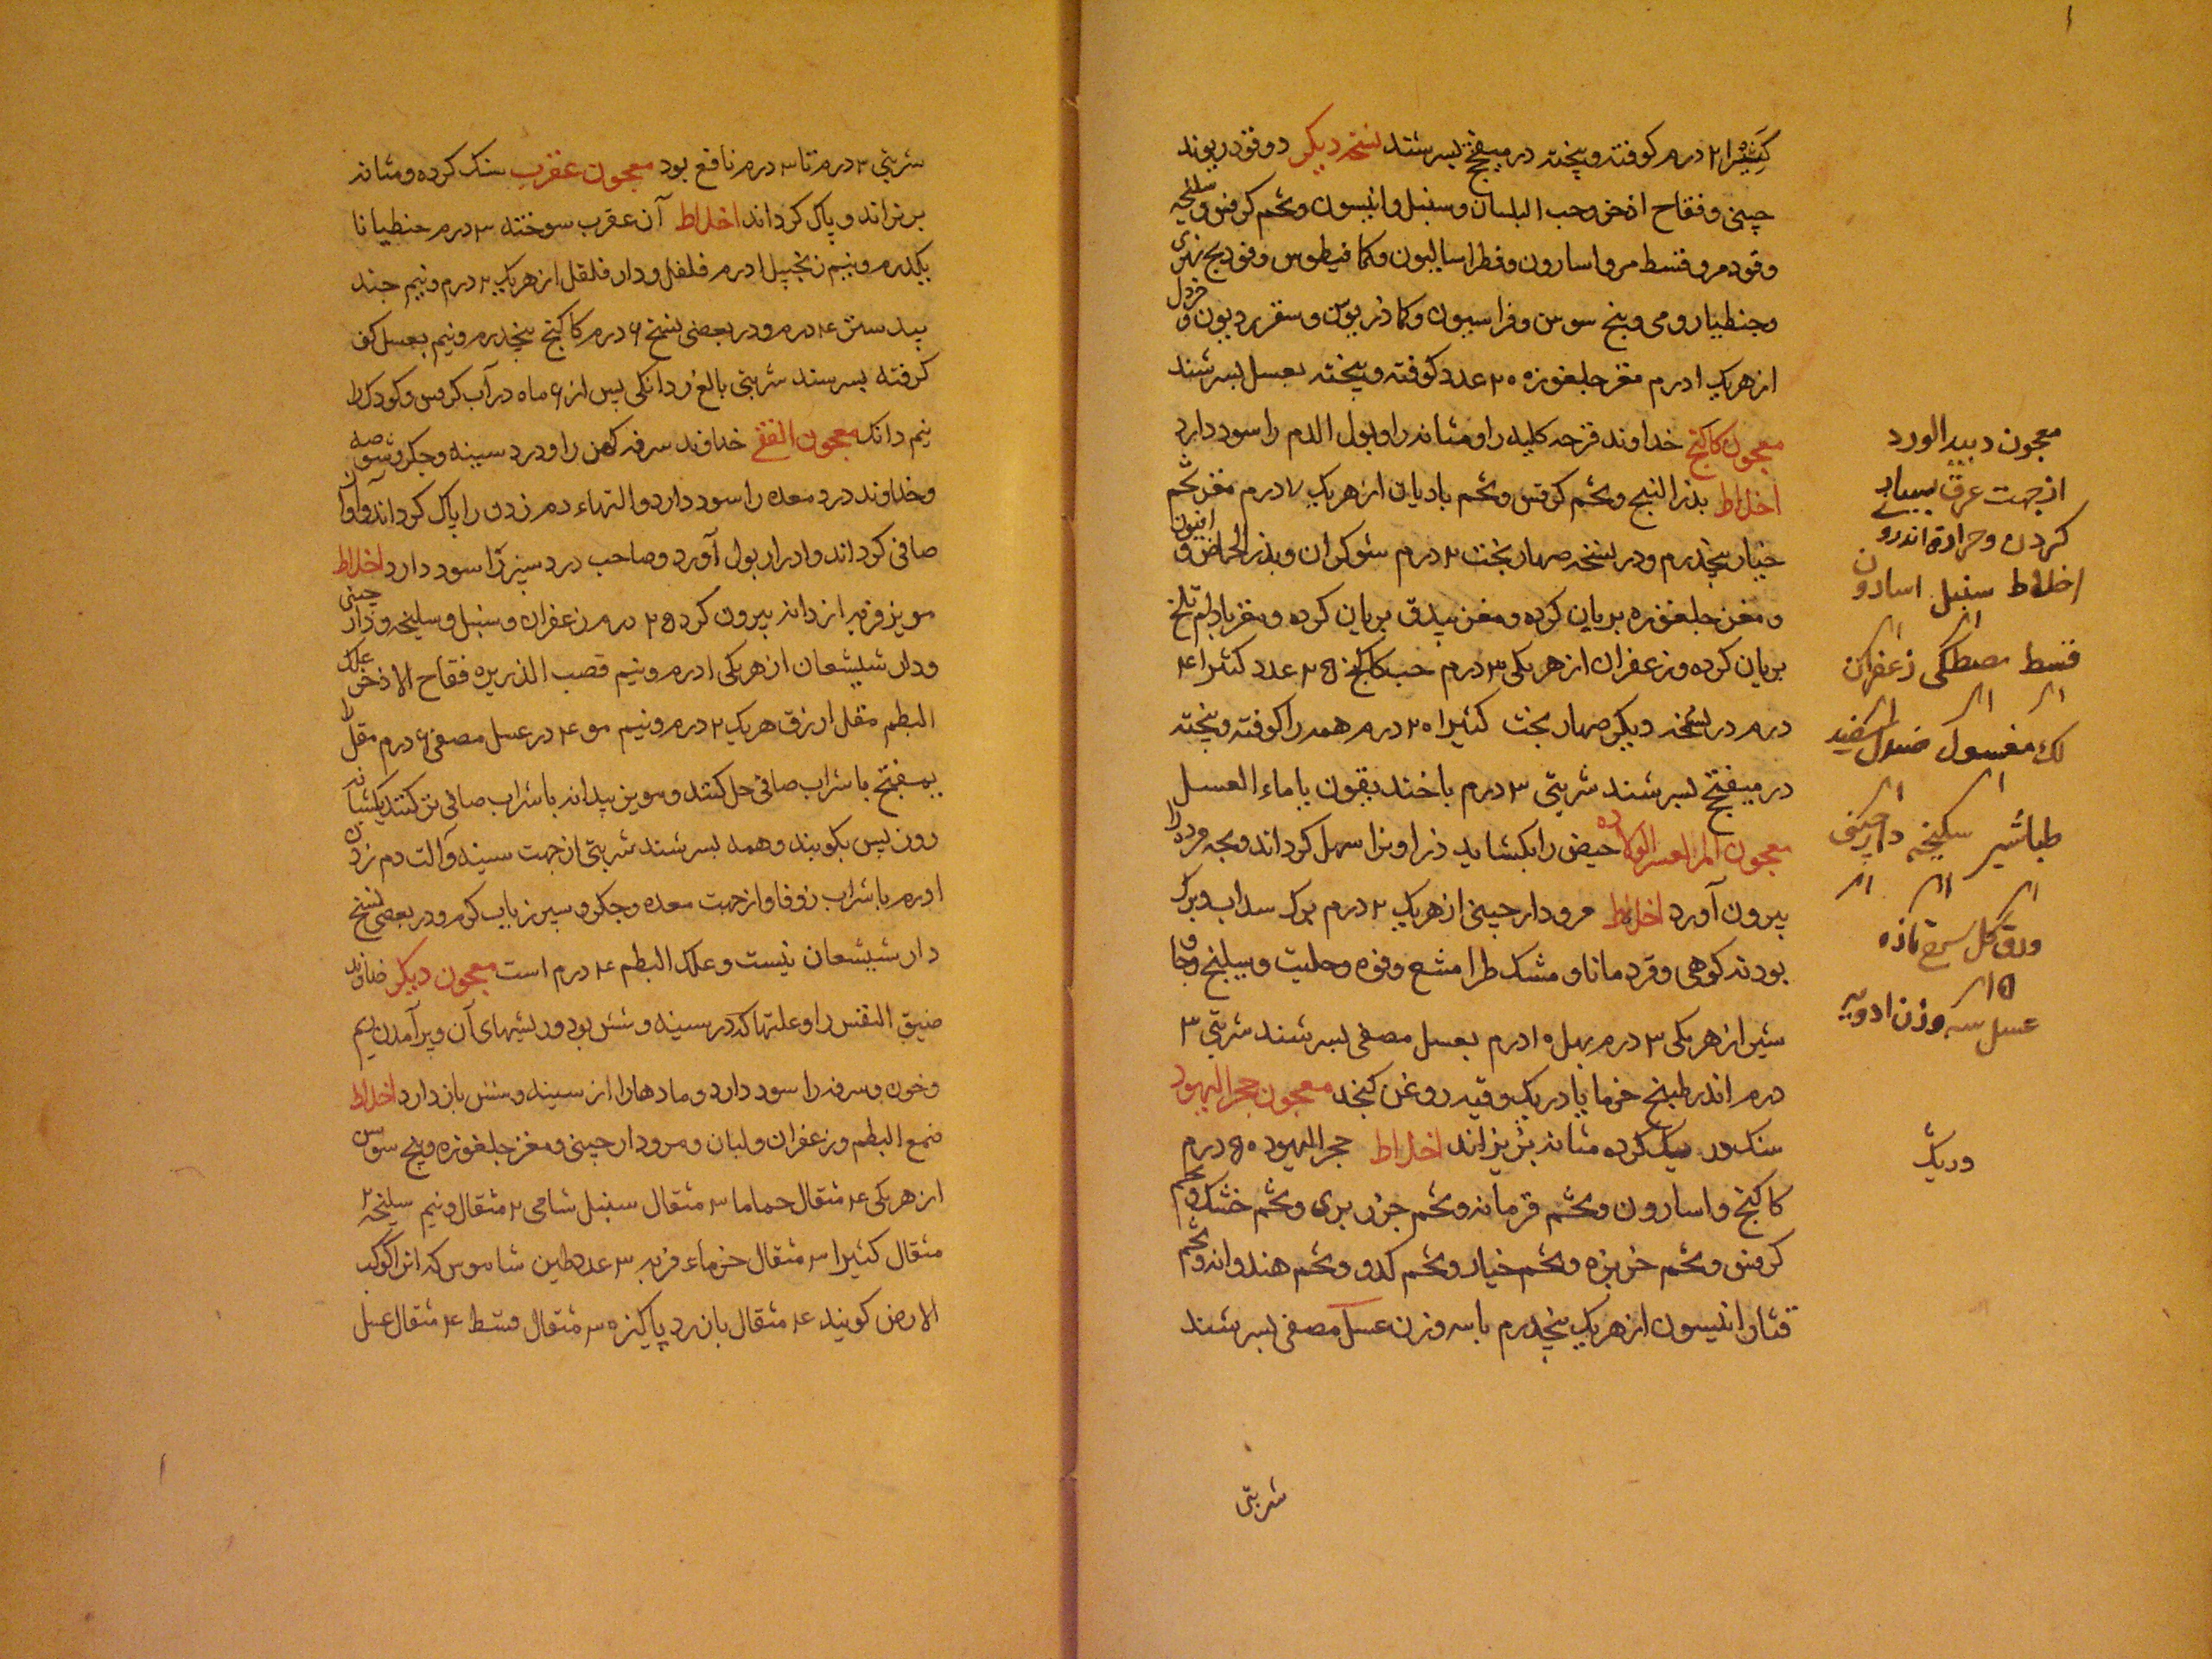 کثیرا ۲ درم کوفته و پخته در میفختج بسرشند نسخه دیکر دوقو و ریوند
چینی و فقاح اذخر و حب البلسان و سنبل و انیسون و تخم کرفس و سلیخه
و قسط مر و اسارون و فطراسالیون و کمافیطوس و فودنج نهری
و جنطیا رومی و بیخ سوس و فراسیون و کماذریوس و سقردیون و خردل
از هر یک ۱ درم مغز جلغوزه ۲۰ عدد کوفته و پیخته بعسل بسرشند
معجون کاکنج خداوند قرحه کلیه را و مثانه را و بول الدم را سود دارد
اخلاط بذر البنج و تخم کرفس و تخم بادیان از هر یک ۷ درم مغز تخم
خیار پنجدرم و در نسخه صهاربخت ۲ درم شوکران و بذر الحماض و افیون
و مغز جلغوزه بریان کرده و مغز بندق بریان کرده و مغز بادام تلخ
بریان کرده و زعفران از هر یکی ۳ درم حب کاکنج ۲۵ عدد کثیرا ۴
درم در نسخه دیکر صهاربخت کثیرا ۲۰ درم همه را کوفته و پخته
در میفختج بسرشند شربتی ۳ درم با خندیقون یا ماء العسل
معجون حیض را بکشاید و زادن را سهل کرداند و بچه مرده را
بیرون آورد اخلاط مر و دارچینی از هر یک ۲ درم برک سداب و برک
بودنه کوهی و قردمانا و مشک طرامشع و فوه و حلتیت و سکبینج و جا
شیر از هر یکی ۳ درم ابهل ۱۰ درم بعسل مصفی بسرشند شربتی ۳
درم اندر طبیخ خرما یا در یک وقیه روغن کنجد معجون حجر الیهود
سنک و ریک کرده مثانه بریزاند اخلاط حجر الیهود ۵۰ درم
کاکنج و اسارون و تخم و تخم جزر بری و تخم خشک و تخم
کرفس و تخم خربزه و تخم خیار و تخم کدو و تخم هندوانه و تخم
قثا و انیسون از هر یک پنجدرم با سه وزن عسل مصفی بسرشند
شربتی
معجون دبید الورد
از جهت عرق بسیار
کردن و حرارة اندرون
اخلاط سنبل اسارون
قسط مصطکی زعفران
لک مغسول صندل سفید
طباشیر سلیخه دارچینی
ورق کل سرخ تازه
عسل سه وزن ادویه
وریک
شربتی ۲ درم تا ۳ درم نافع بود معجون عقرب سنک کرده و مثانه
بریزاند و پاک کرداند اخلاط آن عقرب سوخته ۳ درم جنطیانا
یکدرم و نیم زنجبیل ۱ درم فلفل و دارفلفل از هر یک ۲ درم و نیم جند
بیدستر ۴ درم و در بعضی نسخ ۶ درم کاکنج پنجدرم و نیم بعسل کف
کرفته بسرشند شربتی بالغ را دانکی پس از ۶ ماه در آب کرفس و کودک را
نیم دانک معجون خداوند سرفه کهن را و درد سینه و جکر و شوصه
و خداوند درد معده را سود دارد و آلتهاء دم زدن را پاک کرداند و آواز
صافی کرداند و ادرار بول آورد و صاحب درد سپرز را سود دارد اخلاط
مویز فربه از دانه بیرون کرده ۲۵ درم زعفران و سنبل و سلیخه و دارچینی
و دارشیشعان از هر یکی ۱ درم و نیم قصب الذریره فقاح الاذخر علک
البطم مقل ازرق هر یک ۲ درم و نیم مر ۴ درم عسل مصفی ۶ درم مقل را
بمیفختج با شراب صافی حل کنند و مویز بیدانه با شراب صافی تر کنند یکشبانه
روز پس بکوبند و همه بسرشند شربتی از جهت سینه و آلت دم زدن
۱ درم با شراب زوفا و از جهت معده و جکر و سپرز بآب کرم و در بعضی نسخ
دارشیشعان نیست و علک البطم ۴ درم است معجون دیکر خداوند
ضیق النفس را و علتها که در سینه و شش بود و ریشهای آن و برآمدن ریم
و خون و سرفه را سود دارد و مادها را از سینه و شش باز دارد اخلاط
صمغ البطم و زعفران و لبان و مر و دارچینی و مغز جلغوزه و بیخ سوس
از هر یکی ۴ مثقال حماما ۳ مثقال سنبل شامی ۲ مثقال و نیم سلیخه ۲
مثقال کثیرا ۳ مثقال خرماء فربه ۳ عدد طین شاموس که انرا کوکب
الارض کویند ۴ مثقال بارزد پاکیزه ۳ مثقال قسط ۴ مثقال عسل